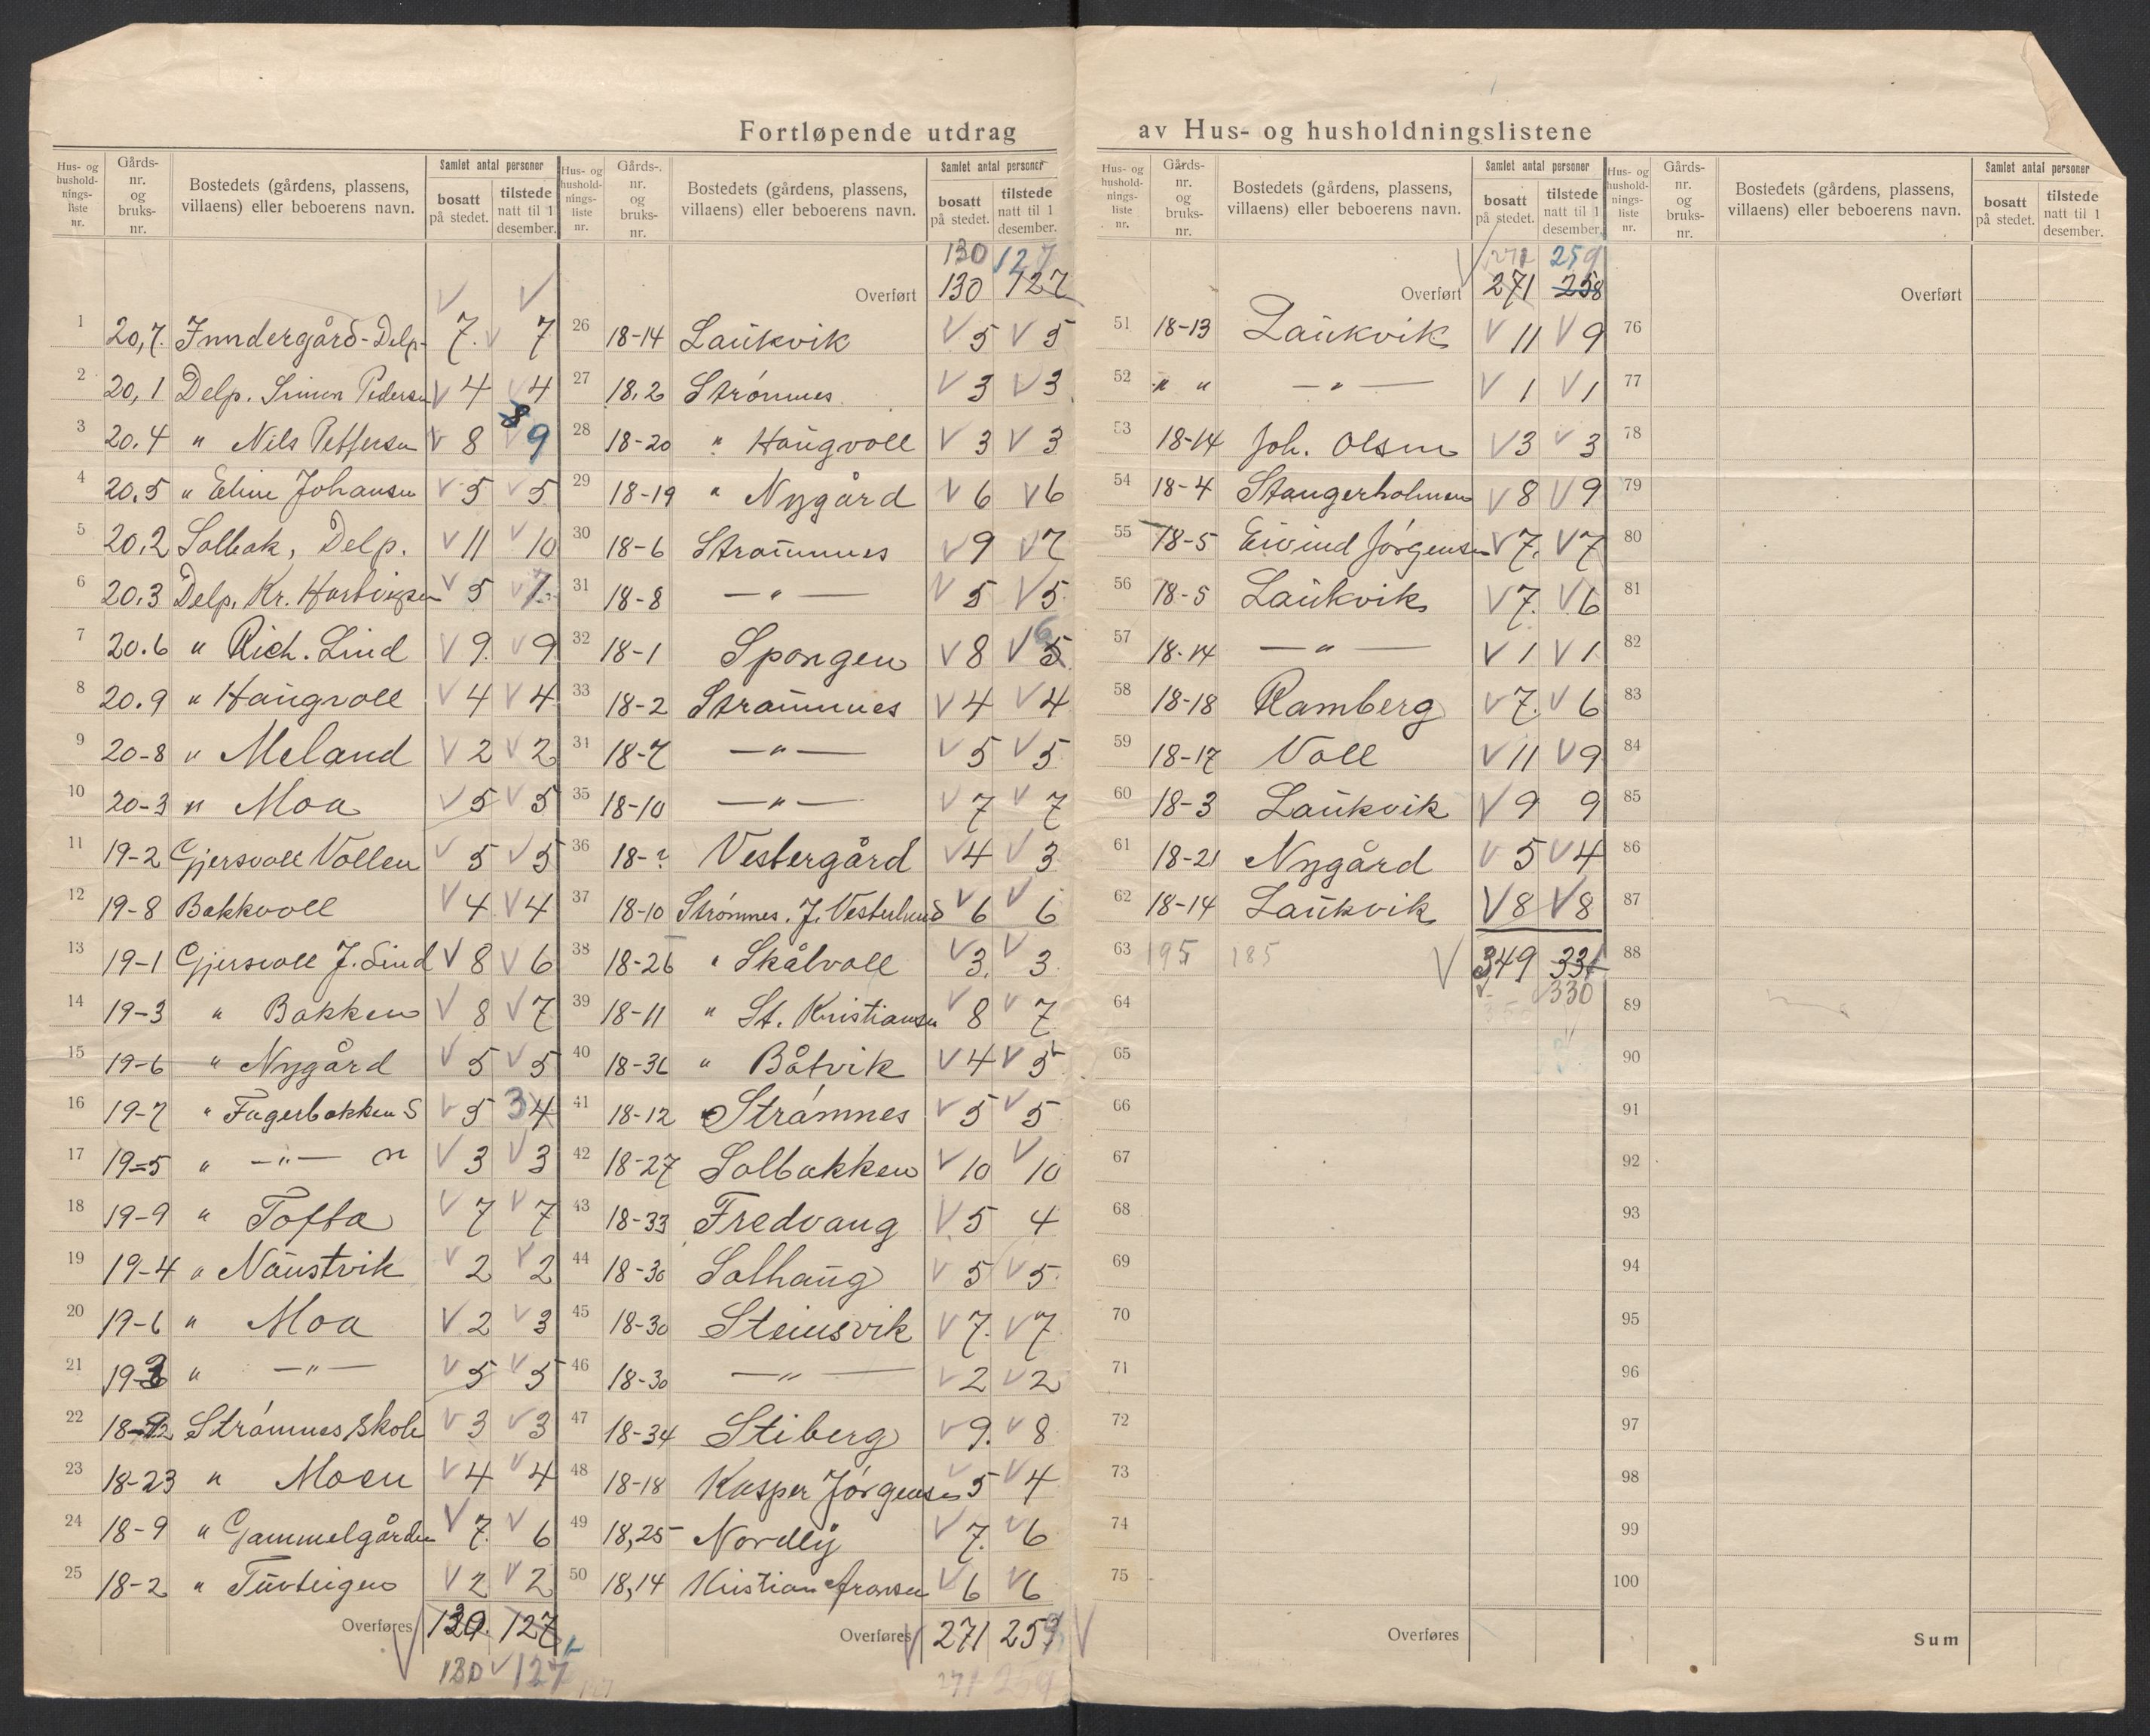 Fortløpende utdrag av Hus- og husholdningslistene
Hus- og husholdnings-liste nr. Gårds-nr. og bruks-nr. Bostedets (gårdens, plassens, villaens) eller beboerens navn. Samlet antal personer bosatt på stedet. tilstede natt til 1 desember.
1 20,7. Inndergård-Delp- 7. 7
2 20,1 Delp. Simon Pedersen 4 4
3 20.4 " Nils Peffersen 8 8 9
4 20.5 " Eline Johansen 5 5
5 20.2 Solbak, Delp. 11 10
6 20.3 Delp. Kr. Hartvigsen 5 7
7 20.6 " Rich. Lind 9. 9
8 20.9 " Haugvoll 4 4
9 20-8 " Meland 2 2
10 20-3 " Moa 5 5
11 19-2 Gjersvoll Vollen 5 5
12 19-8 Bakkvoll 4 4
13 19-1 Gjersvoll J. Lind 8 6
14 19-3 " Bakken 8 7
15 19-6 " Nygård 5 5
16 19-7 " Fagerbakken S 5 3 4
17 19-5 " -"- n 3 3
18 19-9 " Tofta 7 7
19 19-4 " Naustvik 2 2
20 19-6 " Moa 2 3
21 19-3 " -"- 5 5
22 18-22 Strømnes skole 3 3
23 18-23 " Moen 4 4
24 18-9 " Gammelgården 7. 6
25 18-2 " Tuvteigen 2 2
Overføres 130. 127
130 127
Hus- og husholdnings-liste nr. Gårds-nr. og bruks-nr. Bostedets (gårdens, plassens, villaens) eller beboerens navn. Samlet antal personer bosatt på stedet. tilstede natt til 1 desember.
130 127
Overført 130 127
26 18-14 Laukvik 5 5
27 18,2 Strømnes 3 3
28 18-20 " Haugvoll 3 3
29 18-19 " Nygård 6 6
30 18-6 Straumnes 9 7
31 18-8 -"- 5 5
32 18-1 Spongen 8 6 5
33 18-2 Straumnes 4 4
34 18-7 -"- 5 5
35 18-10 -"- 7 7
36 18-? Vestergård 4 3
37 18-10 Strømnes. J. Vesterlund 6 6
38 18-26 " Skålvoll 3. 3
39 18-11 " St. Kristiansen 8 7
40 18-36 " Båtvik 4 5
41 18-12 Strømnes 5 5
42 18-27 Solbakken 10 10
43 18-33 Fredvang 5 4
44 18-30 Solhaug 5 5
45 18-30 Steinsvik 7. 7
46 18-30 -"- 2 2
47 18-34 Stiberg 9. 8
48 18-18 Kasper Jørgensen 5 4
49 18,25 Nordly 7. 6
50 18,14 Kristian Aronsen 6 6
Overføres 271 259
271 259
Hus- og husholdnings-liste nr. Gårds-nr. og bruks-nr. Bostedets (gårdens, plassens, villaens) eller beboerens navn. Samlet antal personer bosatt på stedet. tilstede natt til 1 desember.
271 259
Overført 271 258
51 18-13 Laukvik 11 9
52 " " -"- 1 1
53 18-14 Joh. Olsen 3 3
54 18-4 Stangerholmen 8 9
55 18-5 Eivind Jørgensen 7. 7
56 18-5 Laukvik 7. 6
57 18-14 -"- 1 1
58 18-18 Ramberg 7. 6
59 18-17 Voll 11 9
60 18-3 Laukvik 9 9
61 18-21 Nygård 5 4
62 18-14 Laukvik 8 8
63 195 185 349 331
64 330
65
66
67
68
69
70
71
72
73
74
75
Overføres
Hus- og husholdnings-liste nr. Gårds-nr. og bruks-nr. Bostedets (gårdens, plassens, villaens) eller beboerens navn. Samlet antal personer bosatt på stedet. tilstede natt til 1 desember.
Overført
76
77
78
79
80
81
82
83
84
85
86
87
88
89
90
91
92
93
94
95
96
97
98
99
100
Sum